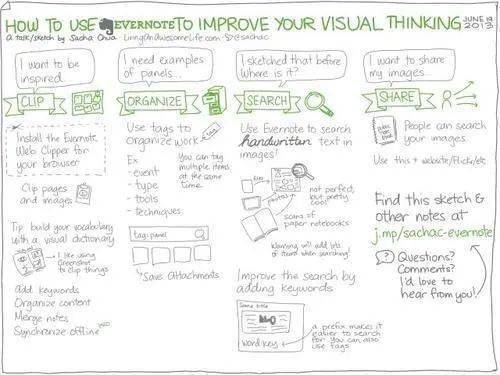 HOW TO USE EVERNOTE TO IMPROVE YOUR VISUAL THINKING
JUNE 18
2013
a talk/sketch by Sacha Chua LivingAnAwesomeLife.com @sachac
I want to be
inspired
CLIP
Install the Evernote
Web Clipper for
your browser
Clip pages
and images
Tip: build your vocabulary
with a visual dictionary
I like using
Greenshot
to clip things
add keywords
Organize content
Merge notes
Synchronize offline
I need examples
of panels...
ORGANIZE
Use tags to
organize work
tag
Ex
- event
- type
- tools
- techniques
You can tag
multiple items
at the same
time.
tag:panel
Save Attachments
I sketched that before
Where is it?
SEARCH
Use Evernote to search
handwritten text in
images!
not perfect,
but pretty
cool
photos
scans of
paper notebooks
Improve the search by
adding keywords
Some title
wordkey
a prefix makes it
easier to search
for. You can also
use tags
I want to share
my images...
SHARE
People can search
your images
Use this + website/Flickr/etc
Find this sketch &
other notes at
j.mp/sachac-evernote
? Questions?
Comments?
I'd love to
hear from you!